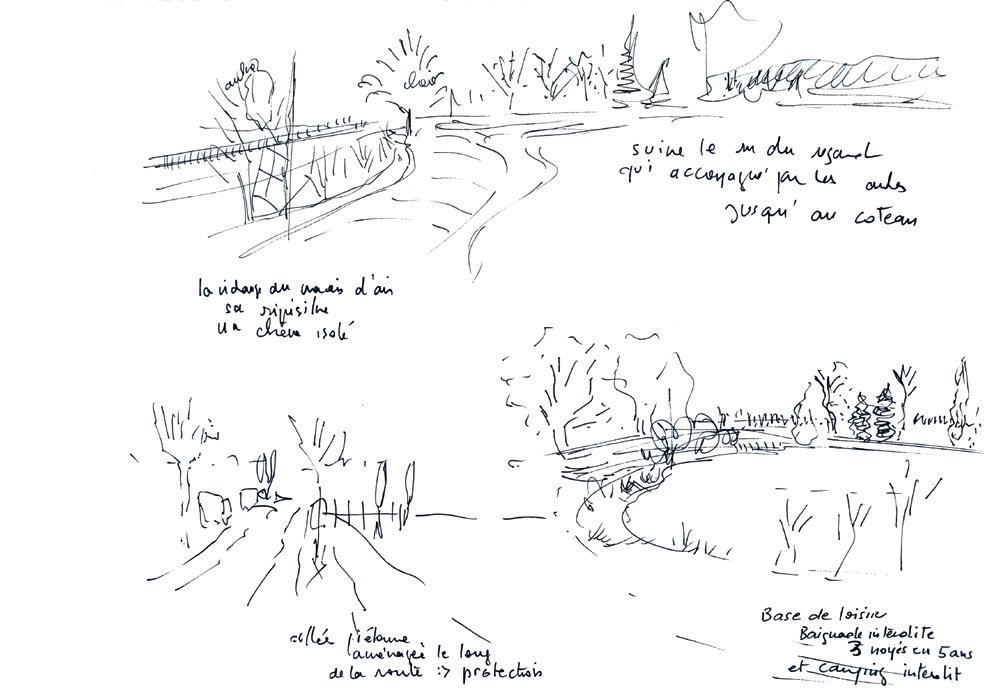 suivre le ru du
qui accompagné par les
jusqu'au coteau
la vidange du marais d'
sa ripisilve
un chêne isolé
allée piétonne
aménagée le long
de la route => protection
Base de loisir
Baignade interdite
3 noyés en 5 ans
et camping interdit